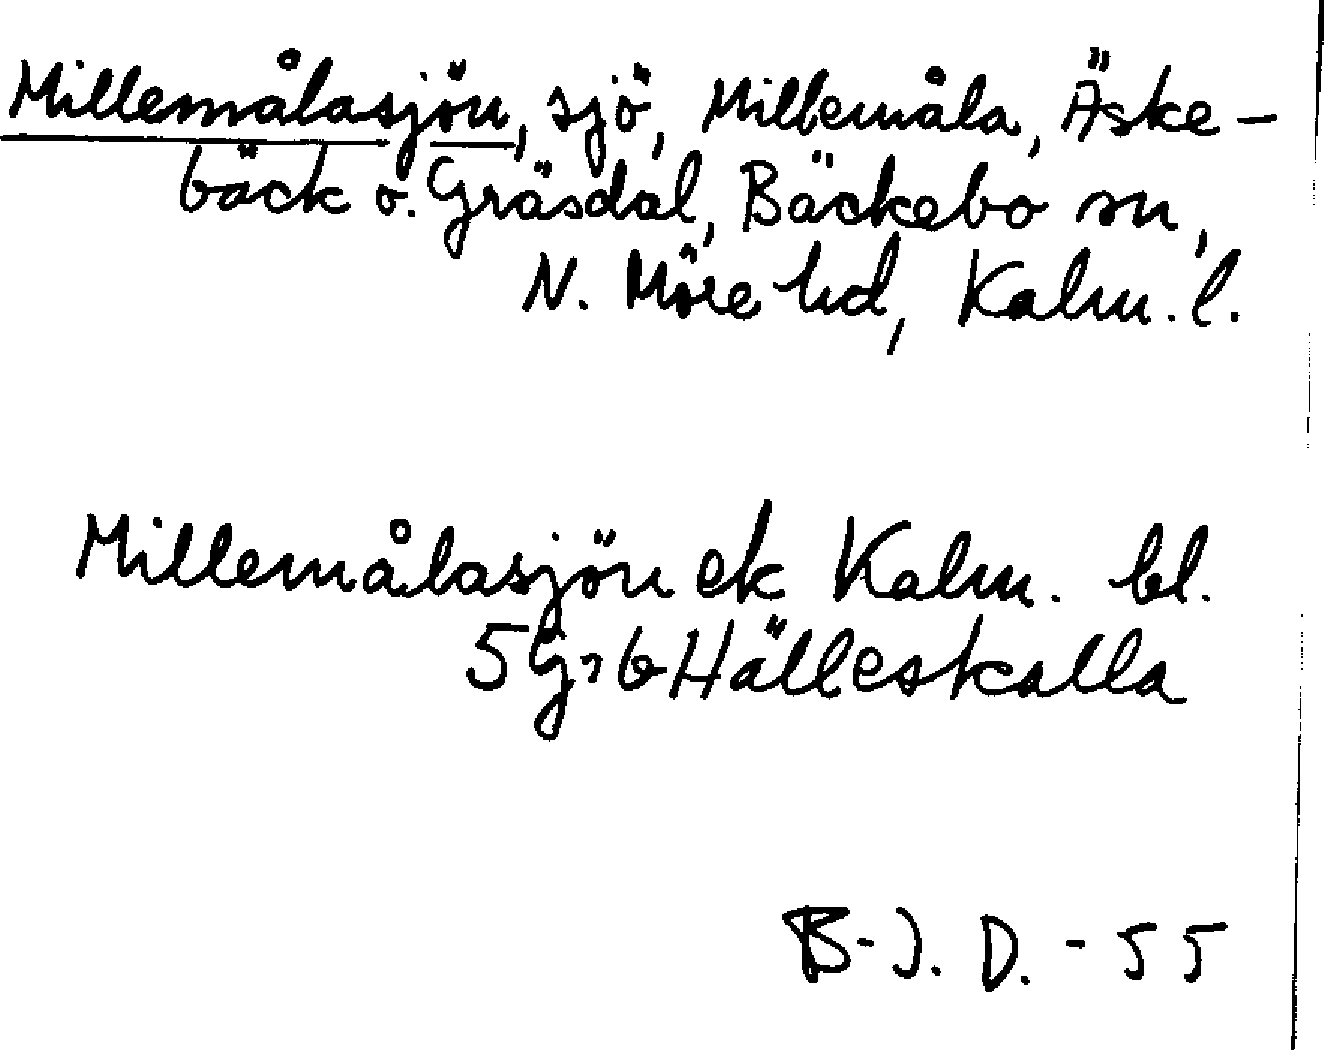 Millemålasjön, sjö, Millemåla, Äske-
bäck o. Gräsdal, Bäckebo sn,
N. Möre hd, Kalm. l.
Millemålasjön ek Kalm. bl.
5G7b Hälleskalla
B-J. D. - 55